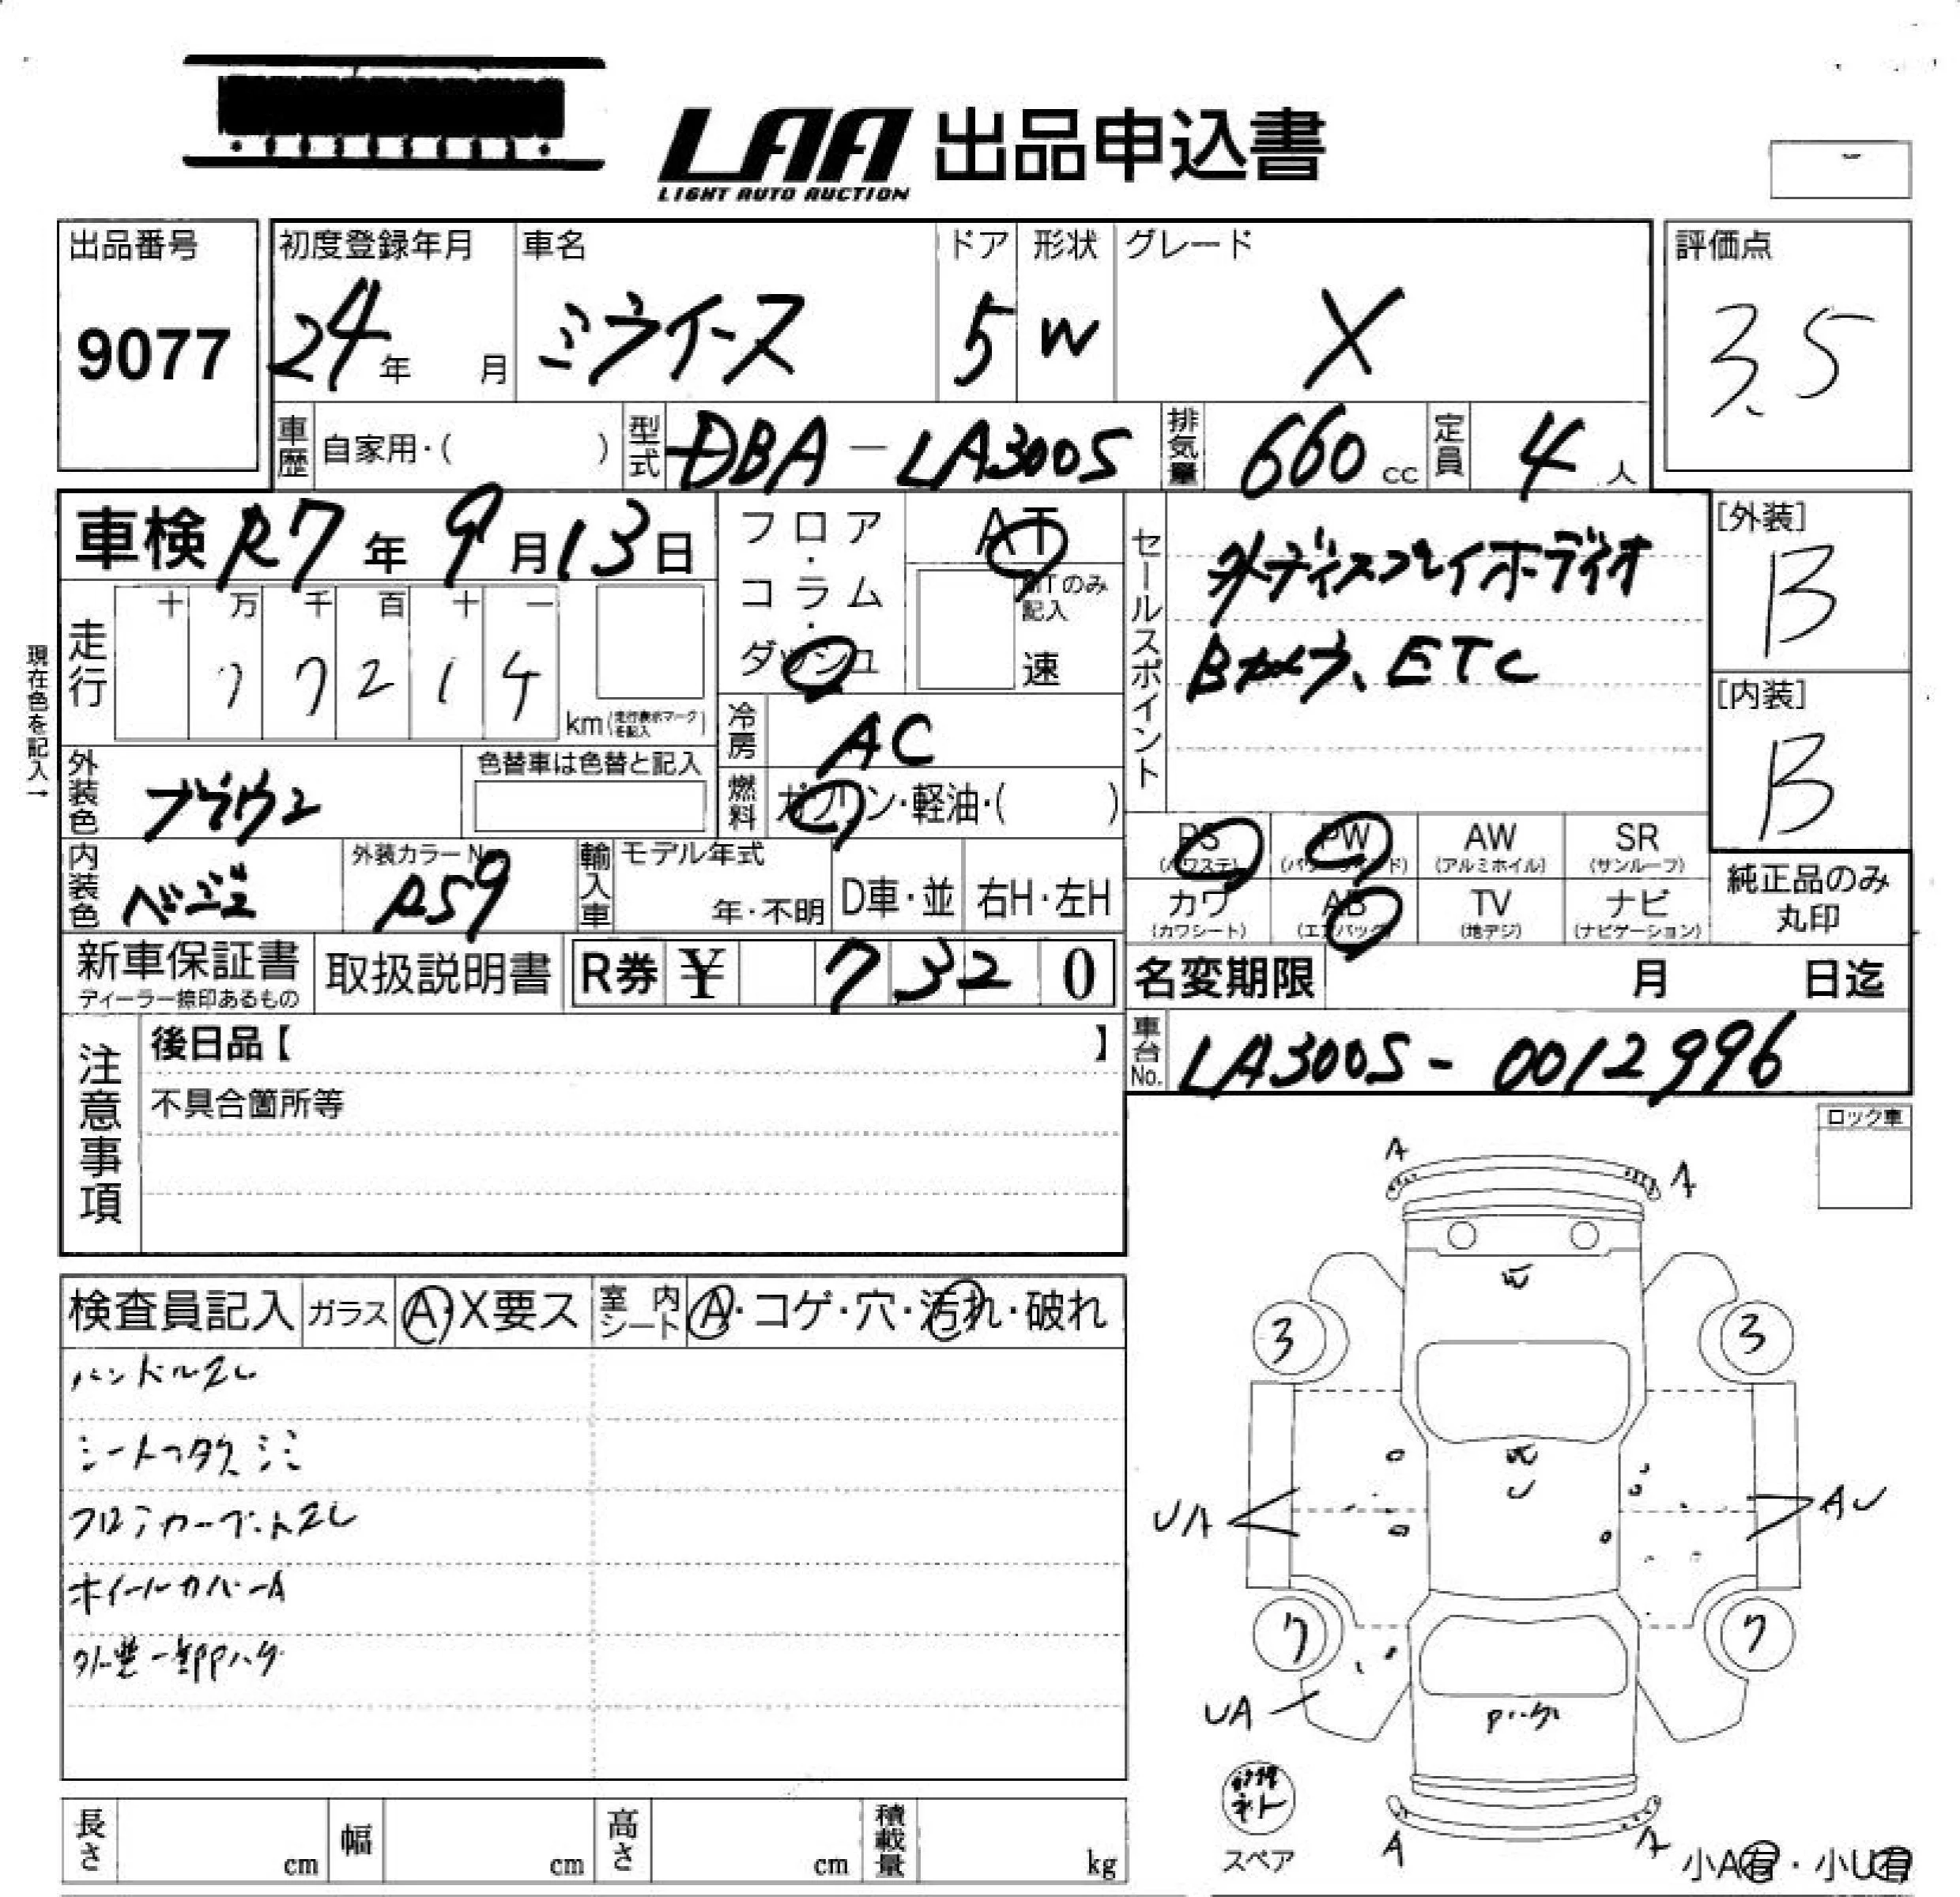 LAA 出品申込書
LIGHT AUTO AUCTION
出品番号
9077
初度登録年月
24年 月
車名
ミライース
ドア
5
形状
W
グレード
X
評価点
3.5
車歴 自家用・( )
型式 DBA-LA300S
排気量 660 cc
定員 4 人
車検 R7年 9月13日
現在色を記入→
走行
十 万 千 百 十 一
7 7 2 1 4
km(走行表示マークを記入)
フロア・コラム・ダッシュ
AT
MTのみ記入
速
冷房 AC
燃料 ガソリン・軽油・( )
セールスポイント
外ディスプレイオーディオ
Bカメラ、ETC
[外装]
B
[内装]
B
外装色 ブラウン
色替車は色替と記入
内装色 ベージュ
外装カラーNo.
R59
輸入車
モデル年式
年・不明
D車・並
右H・左H
PS
(パワステ)
PW
(パワーウインド)
AW
(アルミホイル)
SR
(サンルーフ)
カワ
(カワシート)
AB
(エアバック)
TV
(地デジ)
ナビ
(ナビゲーション)
純正品のみ
丸印
新車保証書
ディーラー捺印あるもの
取扱説明書
R券 ¥ 7 3 2 0
名変期限 月 日迄
車台No. LA300S-0012996
注意事項
後日品【 】
不具合箇所等
ロック車
検査員記入
ガラス A・X要ス
室内シート A・コゲ・穴・汚れ・破れ
ハンドルスレ
シート フタク シミ
フロアカーペットスレ
ホイールカバーA
外装一部Pハゲ
A
A
3
3
UA
AU
7
7
UA
Pハゲ
スペア
A
A
小A有・小U有
長さ cm
幅 cm
高さ cm
積載量 kg